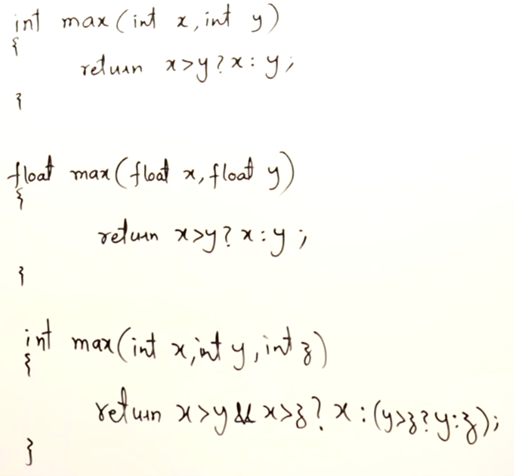 int max(int x,int y)
{
return x>y?x:y;
}
float max(float x,float y)
{
return x>y?x:y;
}
int max(int x,int y,int z)
{
return x>y&&x>z?x:(y>z?y:z);
}